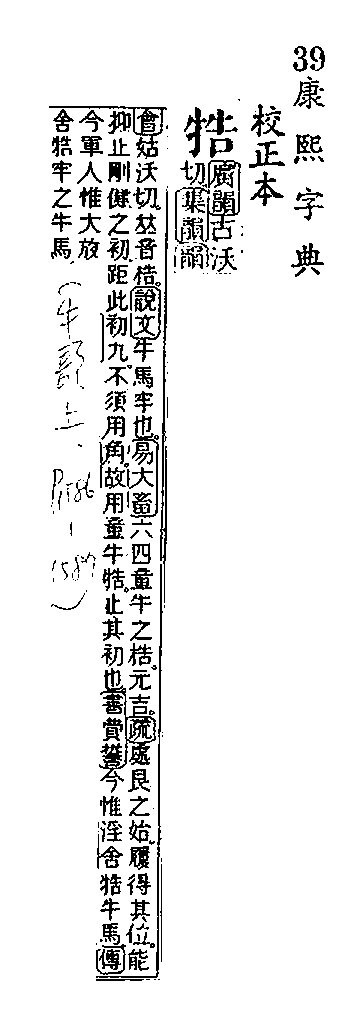 39康熙字典
校正本
牿廣韻古沃
切集韻韻
會姑沃切𠀤音梏。說文牛馬牢也。易大畜六四童牛之梏。元吉。疏處艮之始。履得其位。能
抑止剛健之初。距此初九。不須用角。故用童牛牿。止其初也。書費誓今惟淫舍牿牛馬。傳
今軍人惟大放
舍牿牢之牛馬
(牛部上、P1586-1587)